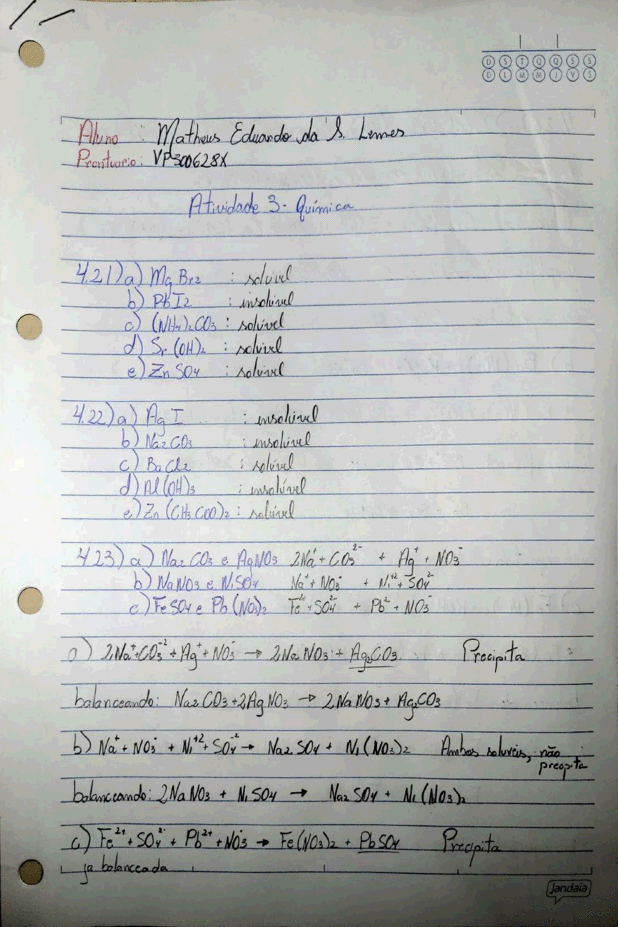 D S T Q Q S S
D L M M J V S
Aluno : Matheus Eduardo da S. Lemes
Prontuario: VP300628X
Atividade 3- Química
4.21) a) MgBr2 : solúvel
b) PbI2 : insolúvel
c) (NH4)2CO3 : solúvel
d) Sr(OH)2 : solúvel
e) ZnSO4 : solúvel
4.22) a) AgI : insolúvel
b) Na2CO3 : insolúvel
c) BaCl2 : solúvel
d) Al(OH)3 : insolúvel
e) Zn(CH3COO)2 : solúvel
4.23) a) Na2CO3 e AgNO3 2Na⁺ + CO3²⁻ + Ag⁺ + NO3⁻
b) NaNO3 e NiSO4 Na⁺ + NO3⁻ + Ni⁺² + SO4²⁻
c) FeSO4 e Pb(NO3)2 Fe²⁺ + SO4²⁻ + Pb²⁺ + NO3⁻
a) 2Na⁺ + CO3⁻² + Ag⁺ + NO3⁻ → 2NaNO3 + Ag2CO3 Precipita
balanceando: Na2CO3 + 2AgNO3 → 2NaNO3 + Ag2CO3
b) Na⁺ + NO3⁻ + Ni⁺² + SO4⁻² → Na2SO4 + Ni(NO3)2 Ambos solúveis, não
precipta
balanceando: 2NaNO3 + NiSO4 → Na2SO4 + Ni(NO3)2
c) Fe²⁺ + SO4²⁻ + Pb²⁺ + NO3⁻ → Fe(NO3)2 + PbSO4 Precipita
ja balanceada
jandaia